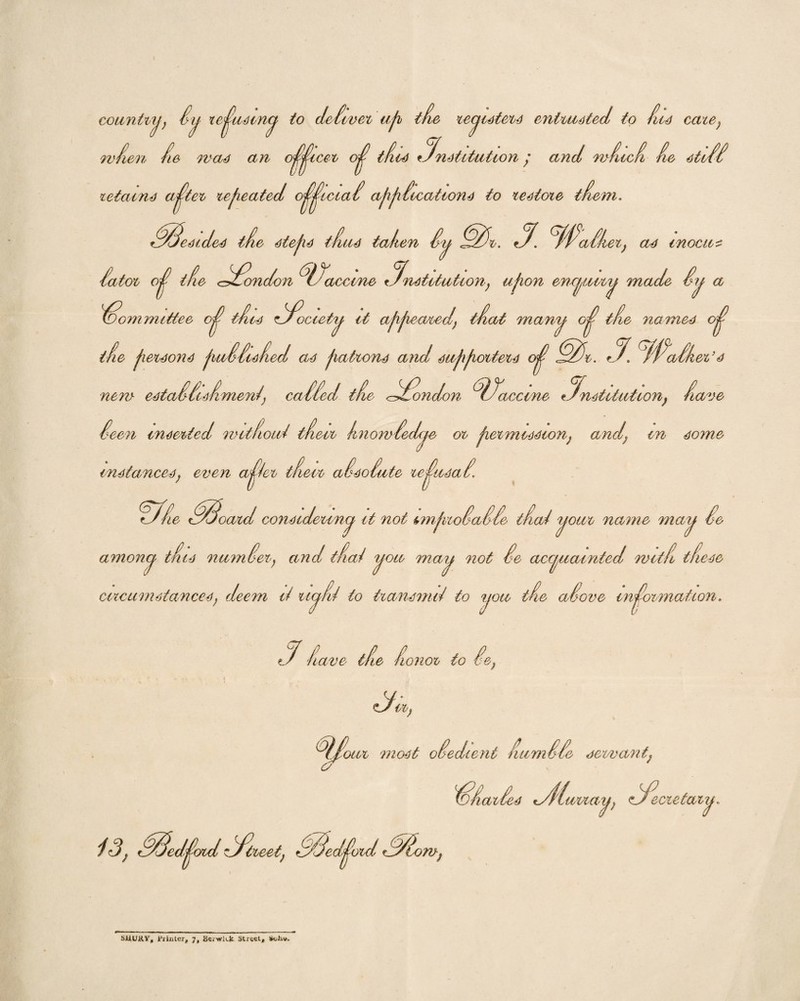 country, by refusing to deliver up the registers entrusted to his care,
when he was an officer of this Institution; and which he still
retains after repeated official applications to restore them.
Besides the steps thus taken by Dr. J. Walker, as inocu=
lator of the London Vaccine Institution, upon enquiry made by a
Committee of this Society it appeared, that many of the names of
the persons published as patrons and supporters of Dr. J. Walker's
new establishment, called the London Vaccine Institution, have
been inserted without their knowledge or permission, and, in some
instances, even after their absolute refusal.
The Board considering it not improbable that your name may be
among this number, and that you may not be acquainted with these
circumstances, deem it right to transmit to you the above information.
I have the honor to be,
Sir,
Your most obedient humble servant,
Charles Murray, Secretary.
13, Bedford Street, Bedford Row,
SHURY, Printer, 7, Berwick Street, Soho.